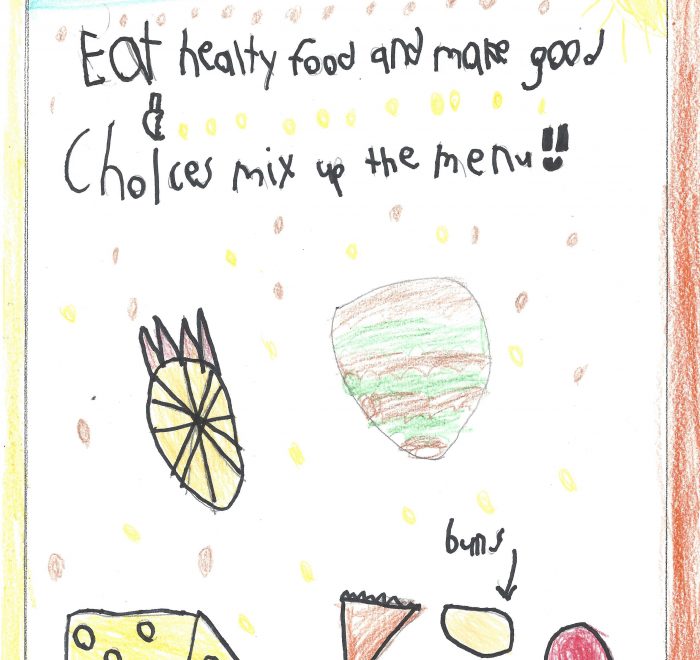 Eat healty food and make good
&
Choices mix up the menu!!
buns